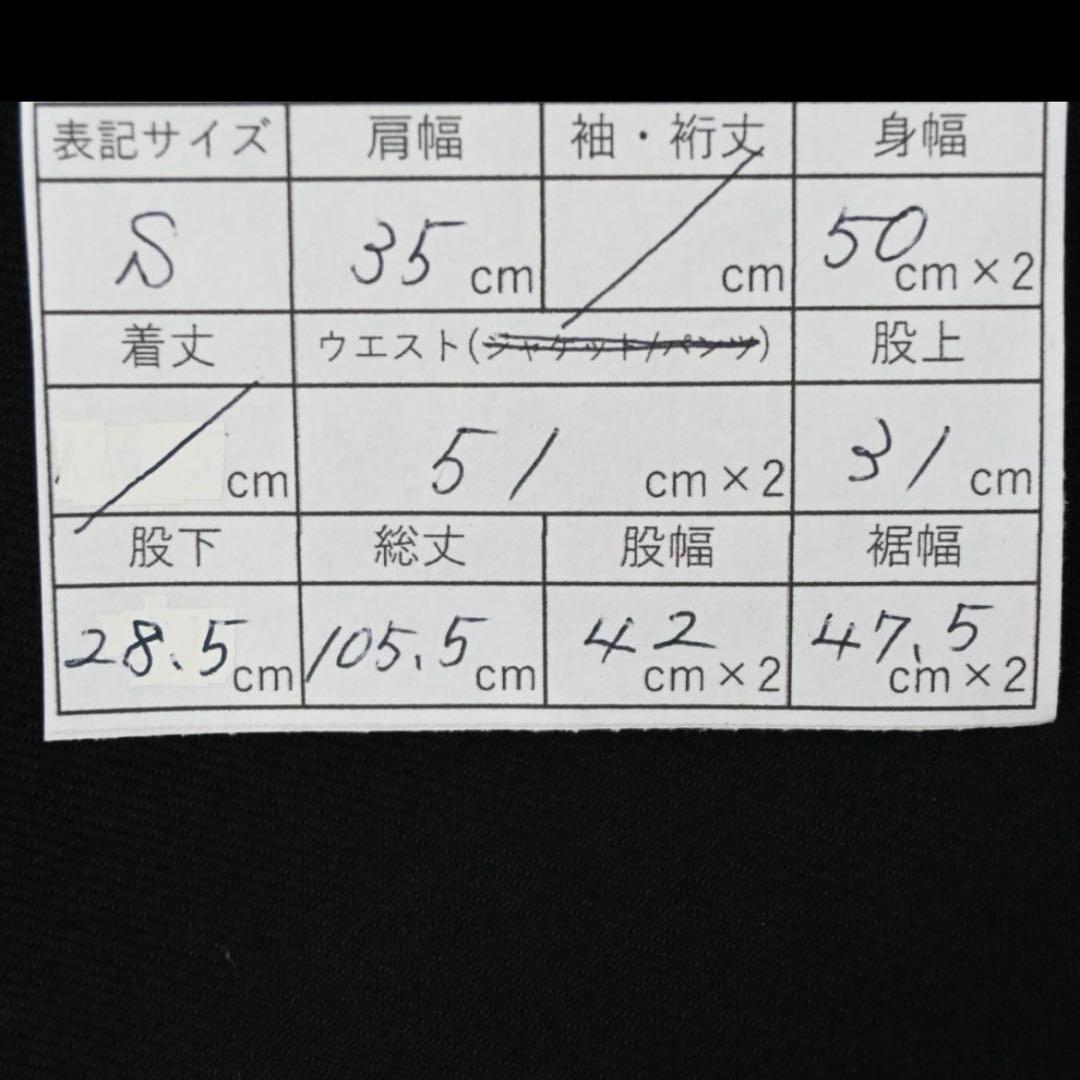 表記サイズ 肩幅 袖・裄丈 身幅
S 35 cm cm 50 cm×2
着丈 ウエスト(ジャケット/パンツ) 股上
cm 51 cm×2 31 cm
股下 総丈 股幅 裾幅
28.5 cm 105.5 cm 42 cm×2 47.5 cm×2